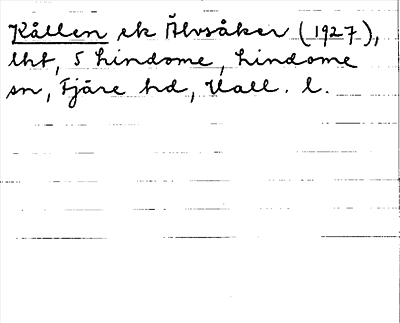 Kållen ek Älvsåker (1927),
lht, S Lindome, Lindome
sn, Fjäre hd, Hall. l.